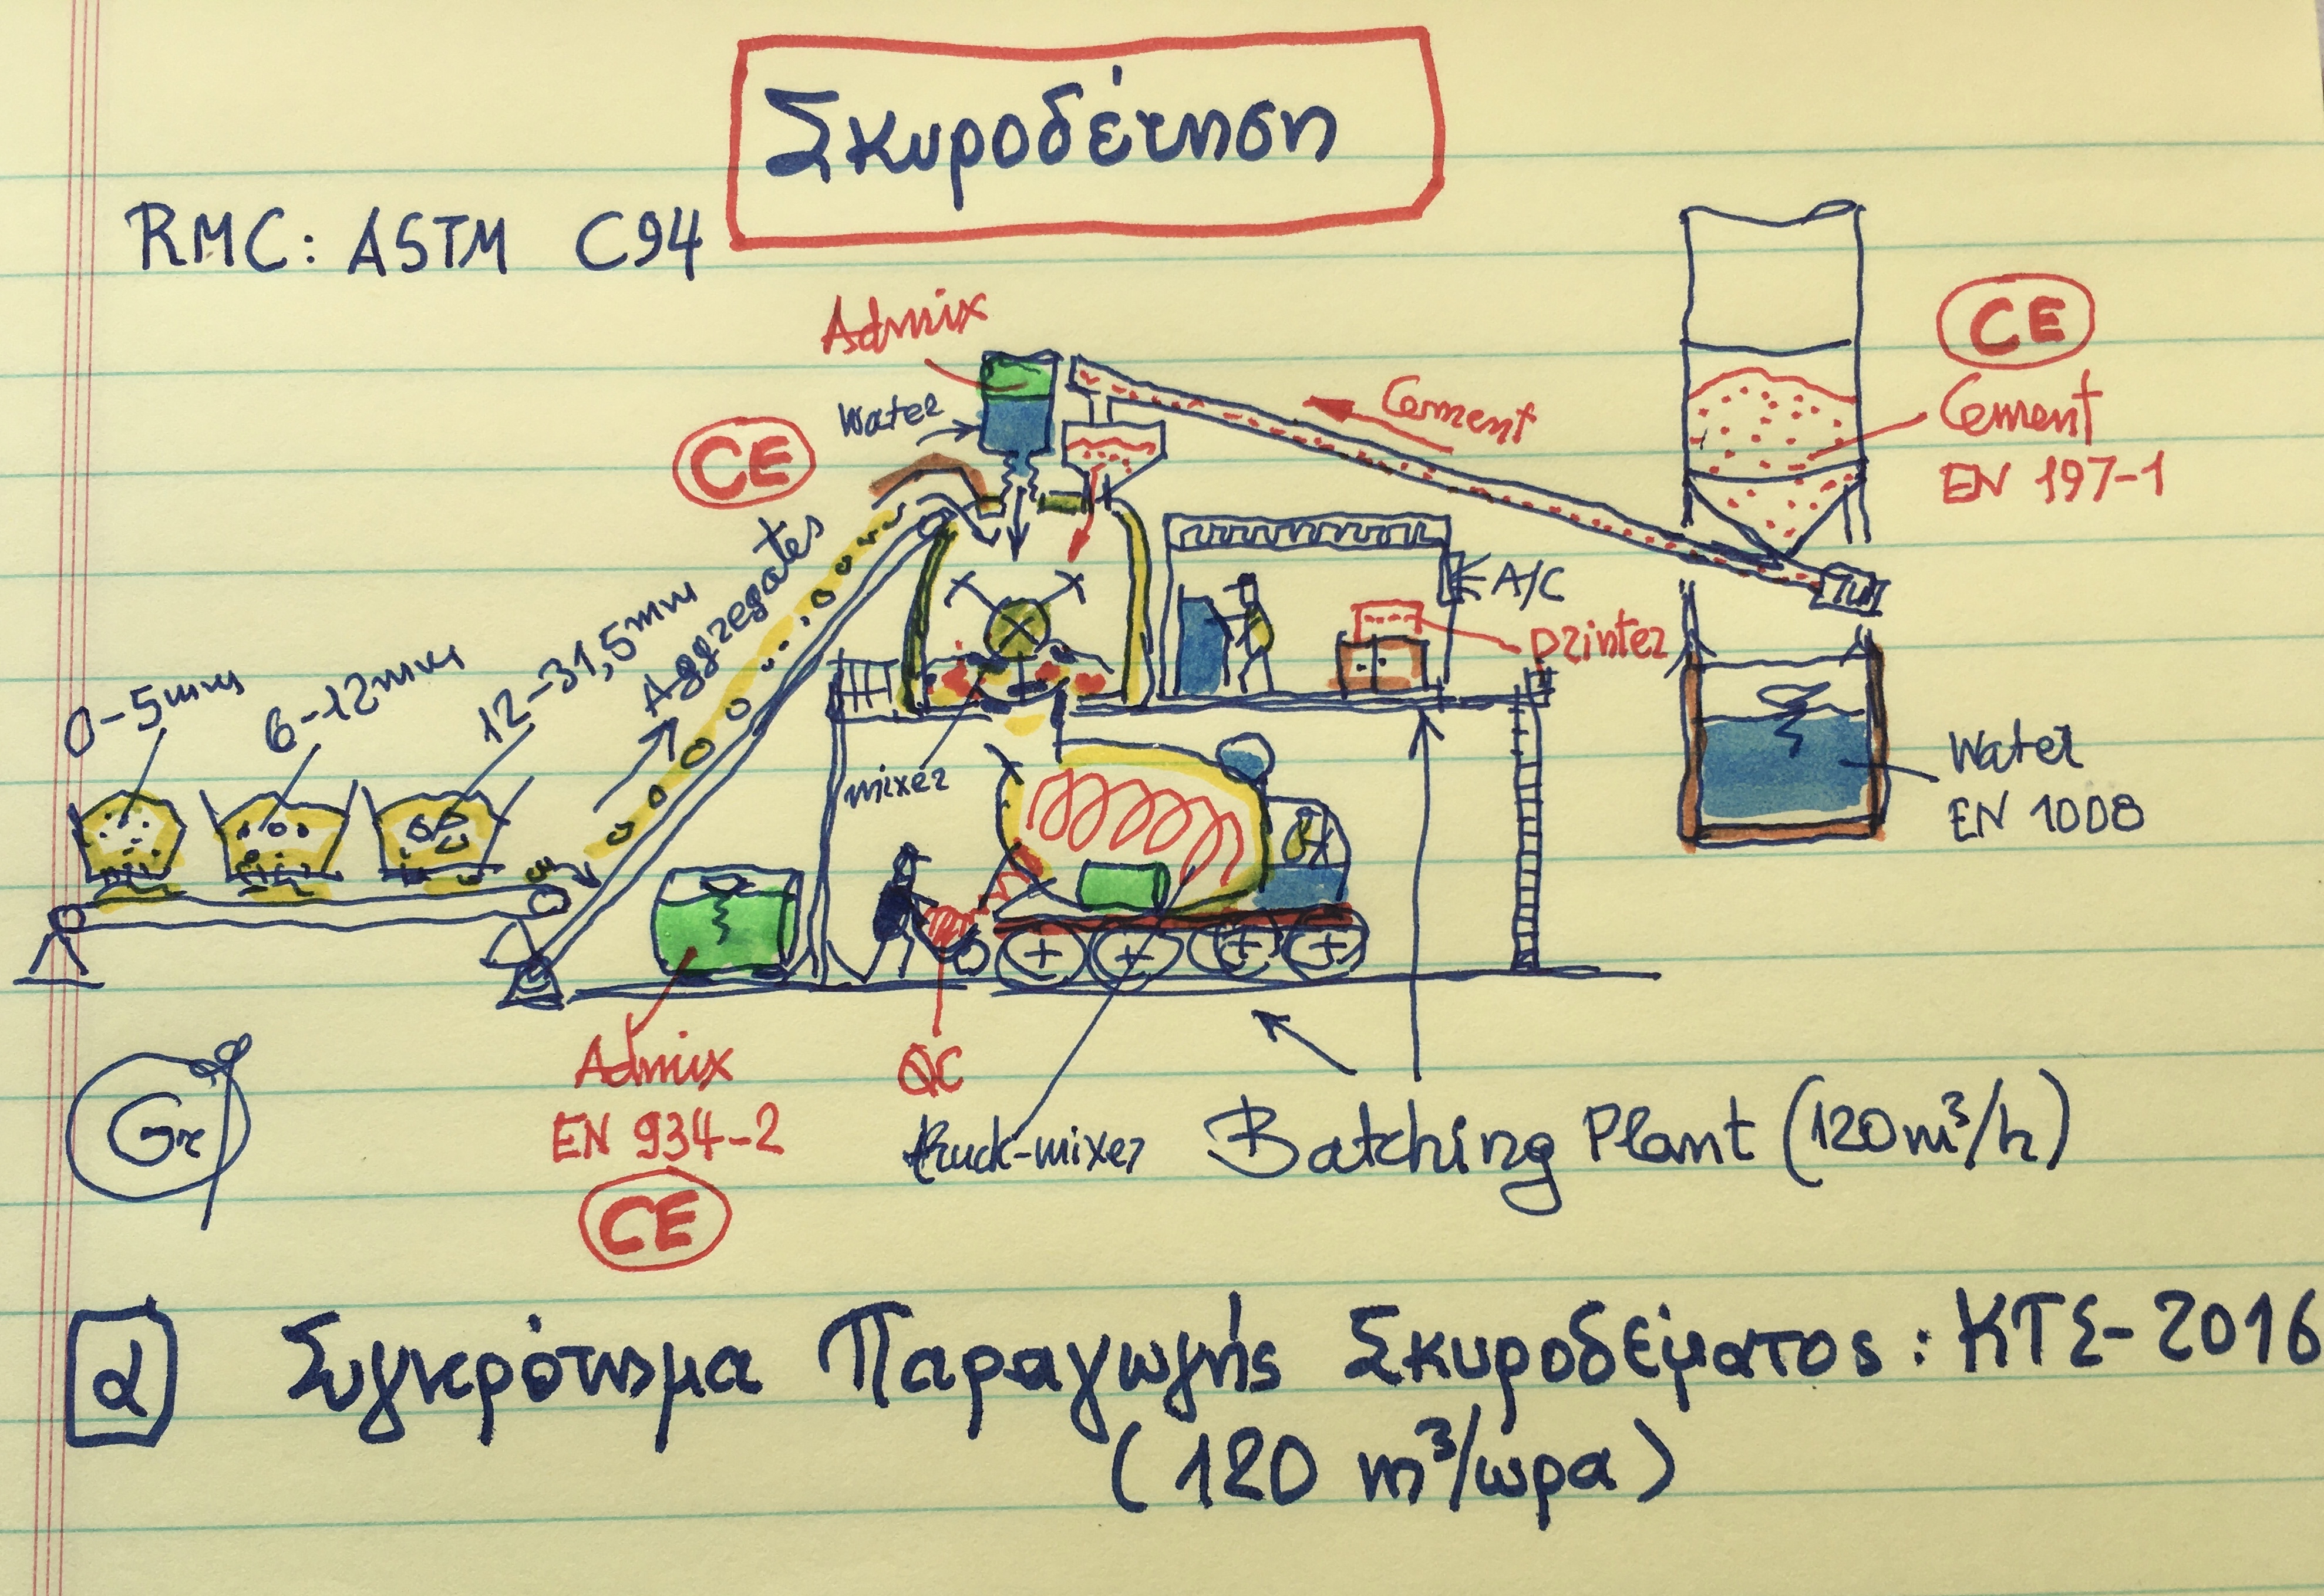 Σκυροδέτηση
RMC: ASTM C94
Admix
Water
CE
Cement
CE
Cement
EN 197-1
A/C
Printer
0-5mm
6-12mm
12-31,5mm
Aggregates
mixer
Water
EN 1008
Admix
EN 934-2
CE
QC
truck-mixer
Batching Plant (120m³/h)
Gr
α Συγκρότημα Παραγωγής Σκυροδέματος: ΚΤΣ-2016
(120 m³/ωρα)